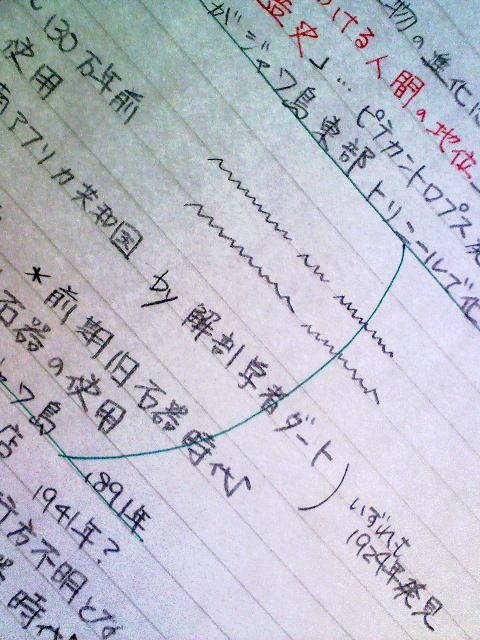 物の進化に
ける人間の地位
造史」… ピテカントロプス
がジャワ島東部トリニールで化
130万年前
使用
アフリカ共和国 by 解剖学者ダート)
いずれも
1924年発見
*前期旧石器時代
石器の使用
ャワ島 1891年
店 1941年?
行方不明とな
時代